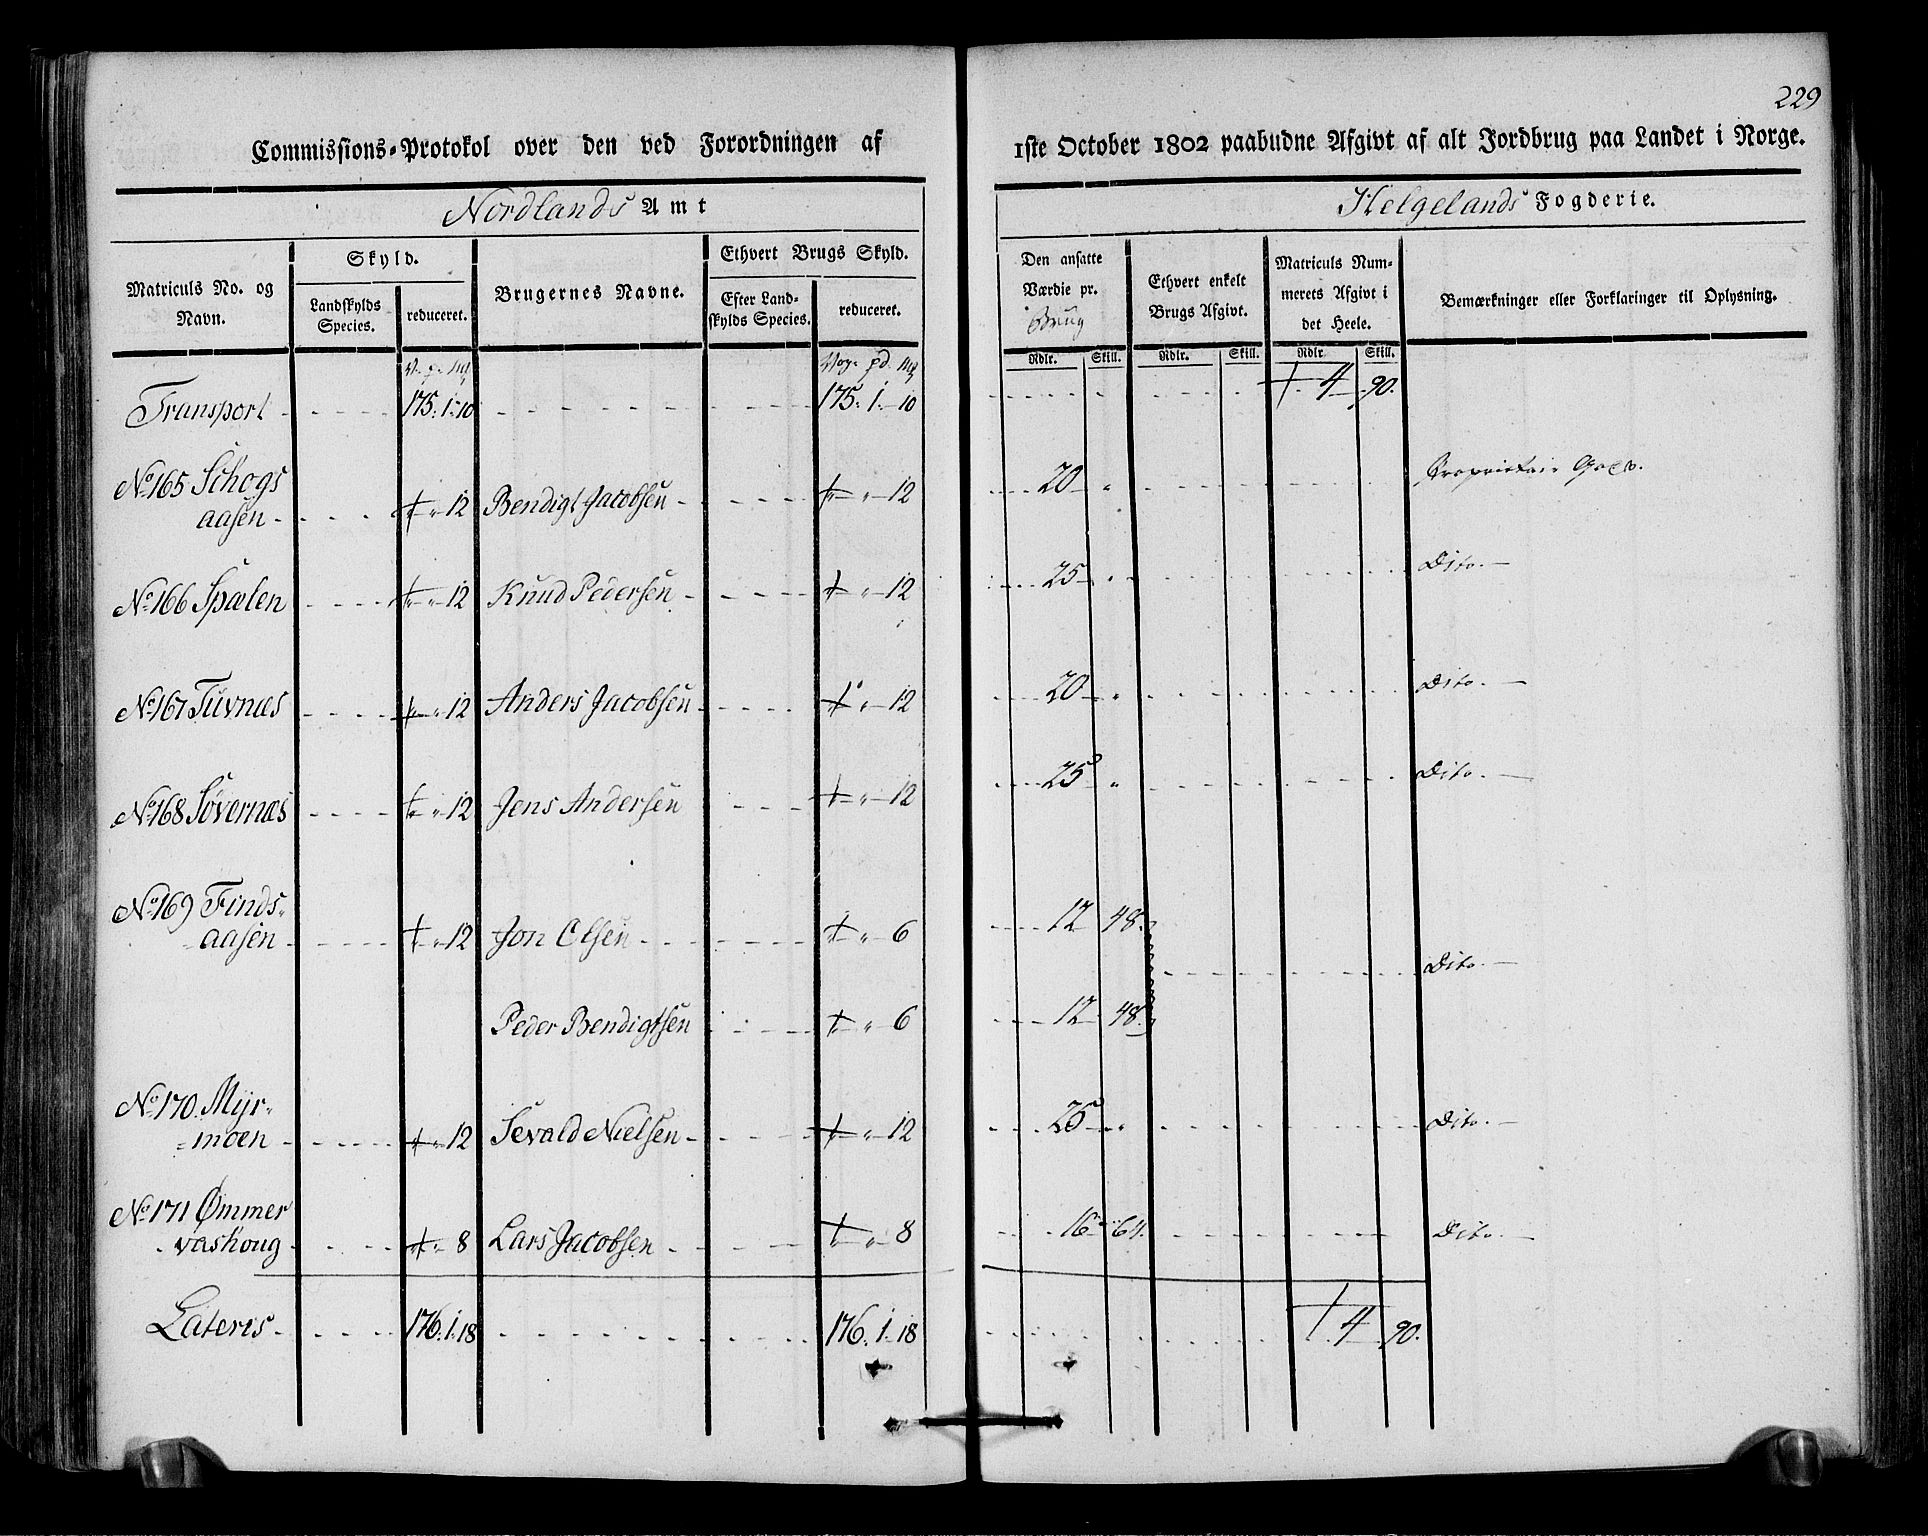 229
Commissions-Protokol over den ved Forordningen af 1ste October 1802 paabudne Afgivt af alt Jordbrug paa Landet i Norge.
Nordlands Amt
Helgelands Fogderie.
Matriculs No. og Navn.
Skyld.
Landskylds Species.
reduceret.
Brugernes Navne.
Ethvert Brugs Skyld.
Efter Land-skylds Species.
reduceret.
Den ansatte Værdie pr. Brug
Rdlr. Skill.
Ethvert enkelt Brugs Afgivt.
Rdlr. Skill.
Matriculs Num-merets Afgivt i det Heele.
Rdlr. Skill.
Bemærkninger eller Forklaringer til Oplysning.
Transport 175. 1. 10 175. 1. 10 4 90.
No 165 Schogs
aasen 12 Bendigt Jacobsen 12 20 Proprietair Gods.
No 166 Spælen 12 Knud Pedersen 12 25 Dito.
No 167 Tuvnæs 12 Anders Jacobsen 12 20 Dito.
No 168 Søvernæs 12 Jens Andersen 12 25 Dito.
No 169 Finds-
aasen 12 Jon Olsen 6 12 48. Dito.
Peder Bendigtsen 6 12 48.
No 170. Mÿr-
moen 12 Sevald Nielsen 12 25 Dito.
No 171 Ømmer
vashoug 8 Lars Jacobsen 8 16 64. Dito.
Lateris 176. 1. 18 176. 1. 18 4 90.